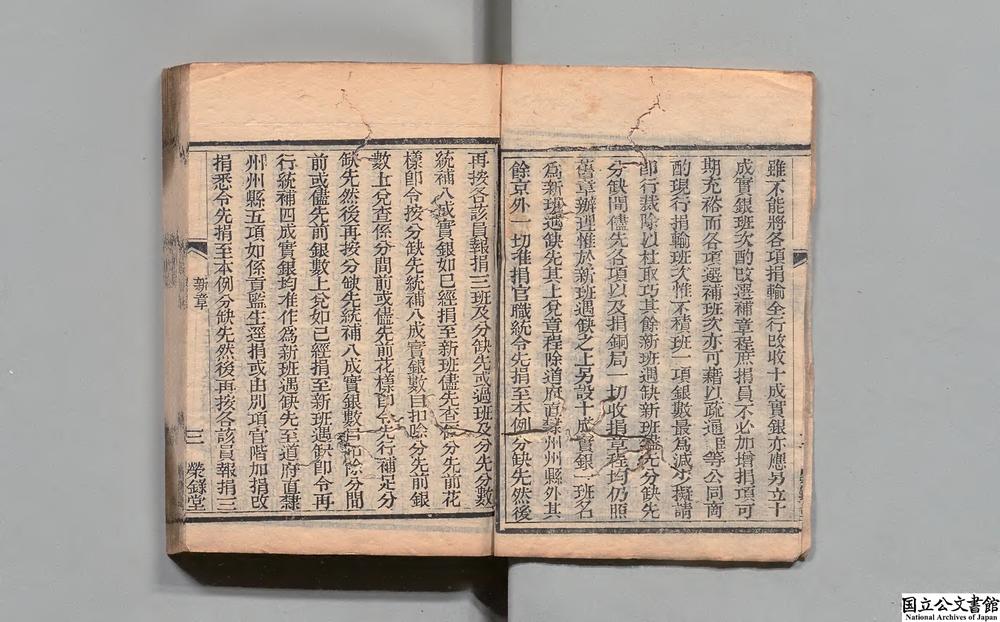 雖不能將各項捐輸全行改收十成實銀亦應另立十
成實銀班次酌改選補章程庶捐員不必加增捐項可
期充裕而各項選補班次亦可藉以疏通臣等公同商
酌現行捐輸班次惟不積班一項銀數最爲減少擬請
卽行裁除以杜取巧其餘新班遇缺新班儘先分缺先
分缺間儘先各項以及捐銅局一切收捐章程均仍照
舊章辦理惟於新班遇缺之上另設十成實銀一班名
爲新班遇缺先其上兌章程除道府直隸州州縣外其
餘京外一切准捐官職統令先捐至本例分缺先然後
再按各該員報捐三班及分缺先或過班及分先分數
統補八成實銀如已經捐至新班儘先查係分先前花
樣卽令按分缺先統補八成實銀數目扣除分先前銀
數上兌查係分間前或儘先前花樣卽令先行補足分
缺先然後再按分缺先統補八成實銀數目扣除分間
前或儘先前銀數上兌如已經捐至新班遇缺卽令再
行統補四成實銀均准作爲新班遇缺先至道府直隸
州州縣五項如係貢監生逕捐或由別項官階加捐改
捐悉令先捐至本例分缺先然後再按各該員報捐三
新章
三
榮錄堂
国立公文書館
National Archives of Japan